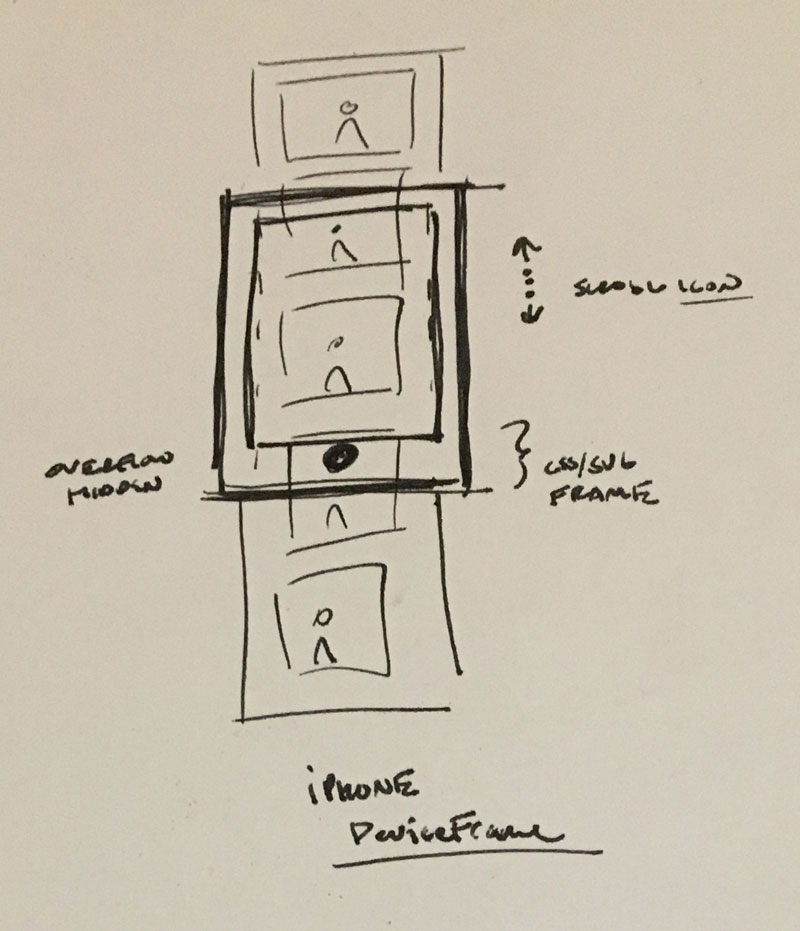 ICON
OVERFLOW
HIDDEN
CSS/SVG
FRAME
iPHONE
DeviceFrame